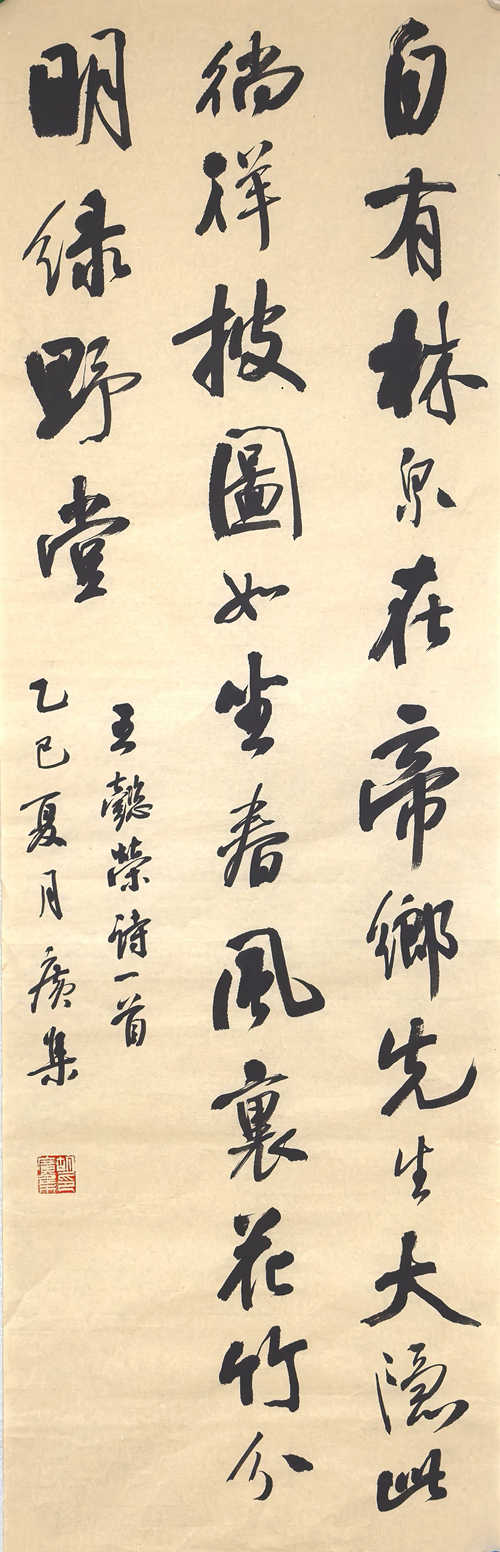 自有林泉在帝鄉先生大隐此
徜徉披圖如坐春風裏花竹分
明绿野堂
王懿荣诗一首
乙巳夏月广集